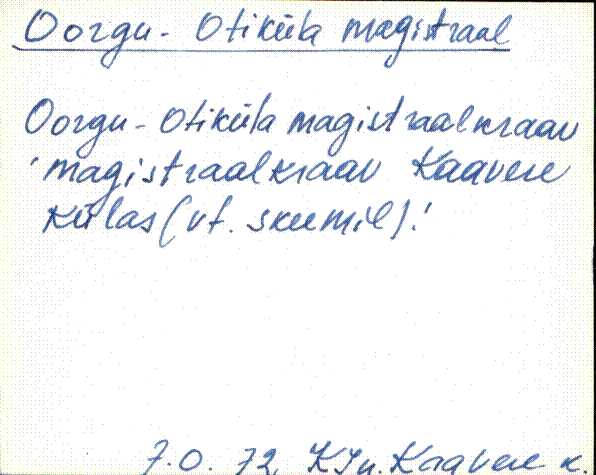 Oorgu - Otiküla magistraal
Oorgu - Otiküla magistraalkraav
'magistraalkraav Kaavere
külas (vt. skeemil).'
7.0. 72, KJn. Kaavere k.